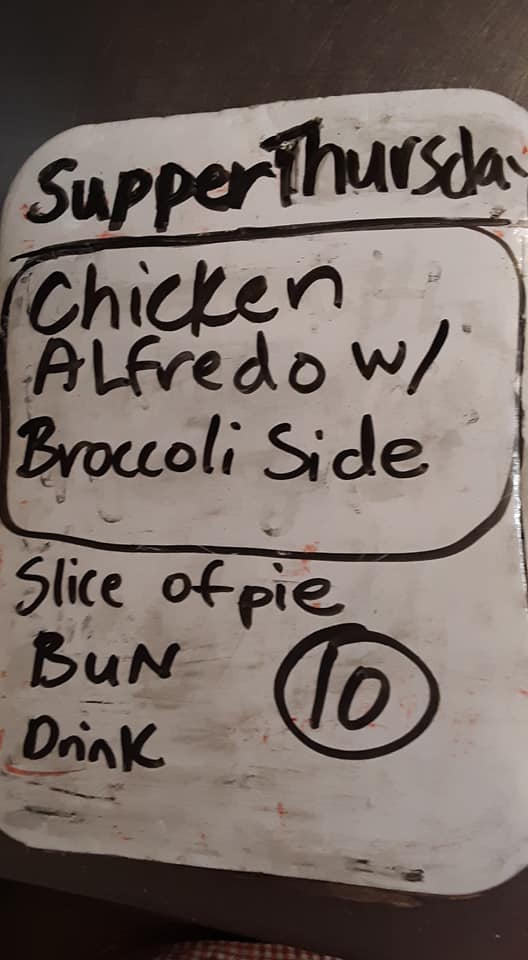 Supper Thursday
Chicken
ALfredo w/
Broccoli Side
Slice of pie
BUN
10
Drink